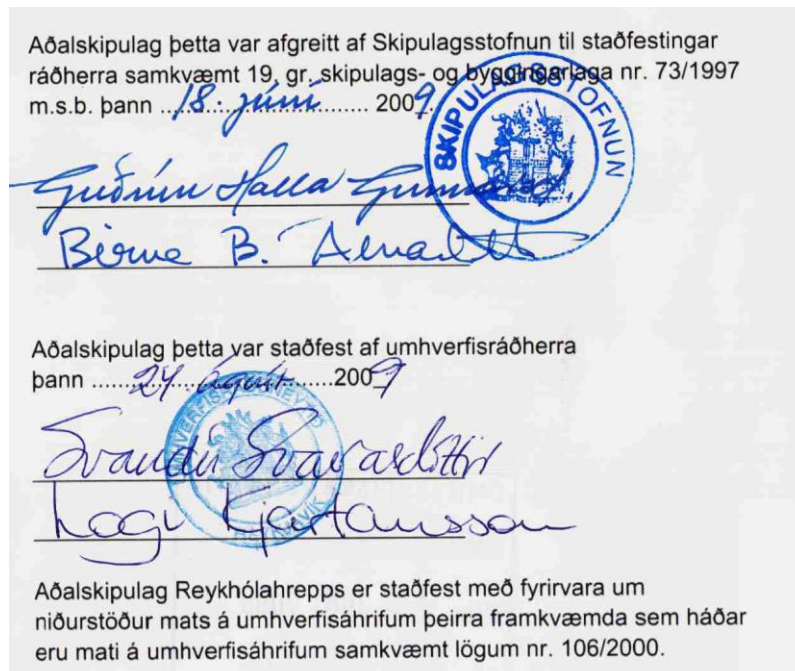 Aðalskipulag þetta var afgreitt af Skipulagsstofnun til staðfestingar
ráðherra samkvæmt 19. gr. skipulags- og byggingarlaga nr. 73/1997
m.s.b. þann ..18. júní.. 2009.
SKIPULAGSSTOFNUN
Guðrún Halla Gunnarsd
Birna B. Árnadótt
Aðalskipulag þetta var staðfest af umhverfisráðherra
þann ......24. ágúst.......2009
UMHVERFISRÁÐUNEYTIÐ
REYKJAVÍK
Svandís Svavarsdóttir
Logi Kjartansson
Aðalskipulag Reykhólahrepps er staðfest með fyrirvara um
niðurstöður mats á umhverfisáhrifum þeirra framkvæmda sem háðar
eru mati á umhverfisáhrifum samkvæmt lögum nr. 106/2000.